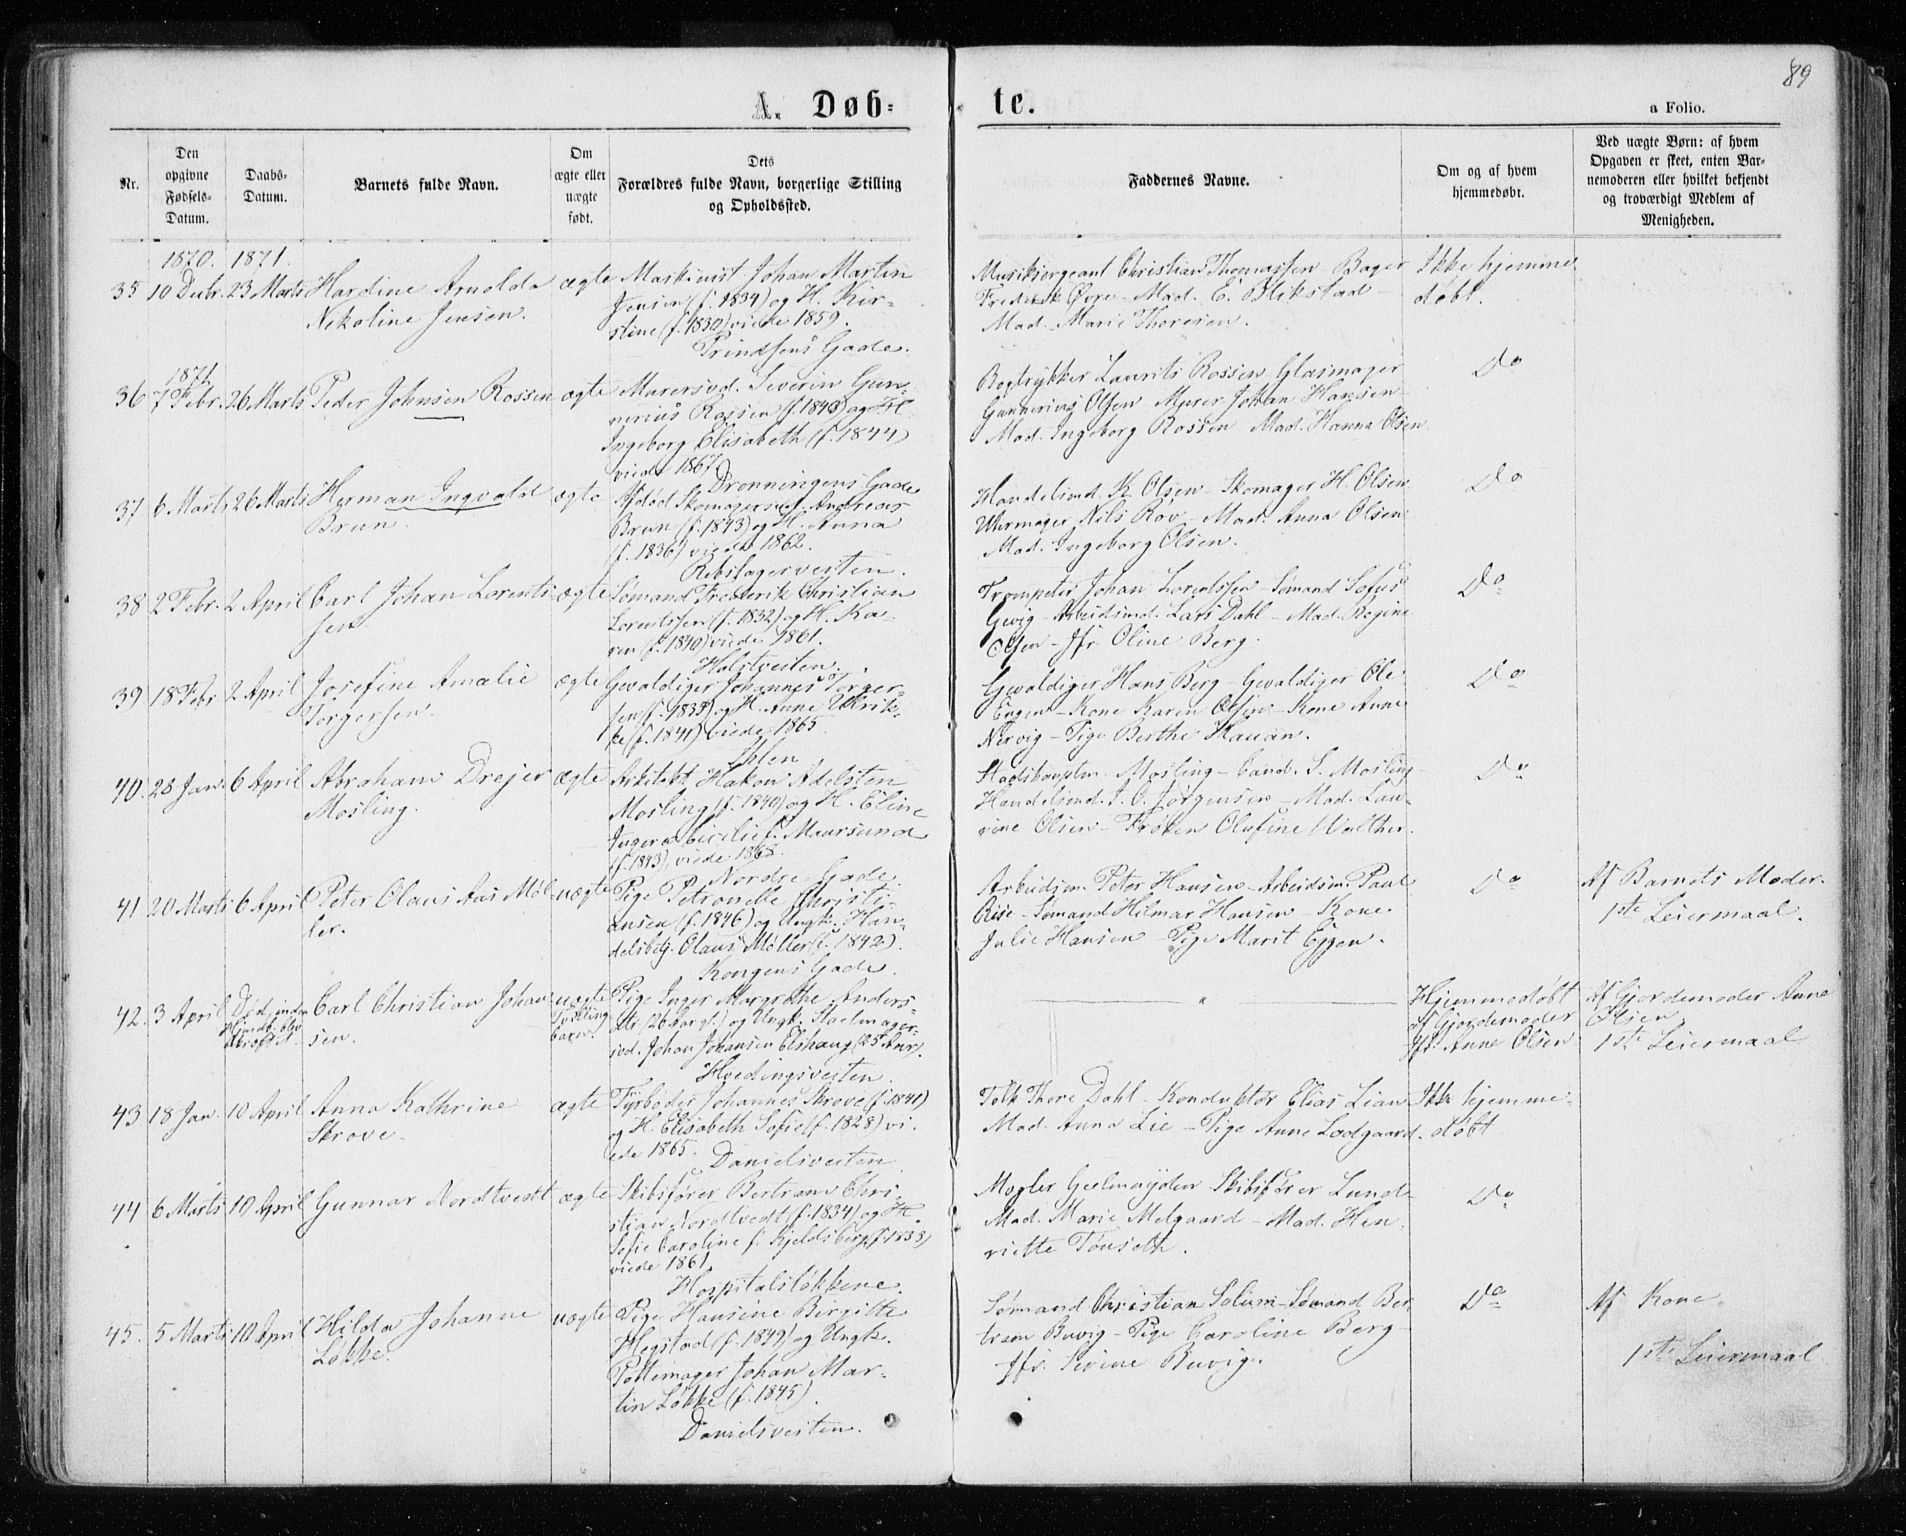 89
A. Døb-
te.
a Folio.
Nr.
Den opgivne Fødsels-Datum.
Daabs-Datum.
Barnets fulde Navn.
Om ægte eller uægte født.
Dets Forældres fulde Navn, borgerlige Stilling og Opholdssted.
Faddernes Navne.
Om og af hvem hjemmedøbt.
Ved uægte Børn: af hvem Opgaven er skeet, enten Barnemoderen eller hvilket bekjendt og troværdigt Medlem af Menigheden.
1870. 1871.
35 10 Decbr. 23 Marts Hardine Arnolda
Nikoline Jensen.
ægte
Maskinist Johan Martin
Jensen (f. 1834) og H. Kir-
stine (f. 1830) viede 1859.
Prindsens Gade.
Musiksergeant Christian Thomassen Bager
Frederik Øvre - Mad. E. Blikstad
Mad. Marie Thoresen.
Ikke hjemme
døbt.
1871
36 7 Febr. 26 Marts Peder Johnsen Rossen
ægte
Murersvd. Severin Gun-
nerius Rossen (f. 1843) og H.
Ingeborg Elisabeth (f. 1844)
viede 1867
Dronningens Gade
Bogtrykker Laurits Rossen Glasmager
Gunnerius Olsen Murer Johan Hansen
Mad. Ingeborg Rossen Mad. Hanna Olsen
Do
37 6 Marts 26 Marts Herman Ingvald
Brun.
ægte
Afdød Skomagersvd. Andreas
Brun (f. 1843) og H. Anna
(f. 1836) viede 1862.
Rebslagerveiten.
Handelsmd. K. Olsen - Skomager H. Olsen
Uhrmager Nils Röv - Mad. Anna Olsen
Mad. Ingeborg Olsen.
Do
38 2 Febr. 2 April Carl Johan Lorents-
sen
ægte
Sømand Frederik Christian
Lorentssen (f. 1832) og H. Ka-
ren (f. 1840) viede 1861.
Holstveiten.
Trompeter Johan Lorentssen - Sømand Sofus
Gevig - Arbeidsmd. Lars Dahl - Mad. Regine
Olsen - Jfr. Oline Berg.
Do
39 18 Febr 2 April Josefine Amalie
Torgersen.
ægte
Gevaldiger Johannes Torger-
sen (f. 1835) og H. Anne Ulrik-
ke (f. 1841) viede 1865
Ihlen
Gevaldiger Hans Berg - Gevaldiger Ole
Engen - Kone Karen Olsen - Kone Anne
Nervig - Pige Berthe Hauan.
Do
40. 28 Jan. 6 April Abraham Drejer
Mosling.
ægte
Arkitekt Hakon Adelsten
Mosling (f. 1840) og H. Eline
Ingera Cecilie f. Maursund
(f. 1843), viede 1868.
Nordre Gade
Stadshauptm. Mosling - Cand. S. Mosling
Handelsmd. J. O. Jørgensen - Mad. Lau-
rine Olsen - Frøken Olufine Walther.
Do
41 20 Marts 6 April Peter Olaus Aas Møl-
ler.
uægte
Pige Petronelle Christi-
ansen (f. 1846) og Ungk. Han-
delsbetj. Olaus Møller (f. 1842).
Kongens Gade.
Arbeidsm. Peter Hansen - Arbeidsm. Paul
Rise - Sømand Hilmar Hansen - Kone
Julie Hansen - Pige Marit Eggen.
Do
Af Barnets Moder.
1ste Leiermaal.
42. 3 April Død inden
Carl Christian Johan-
sen.
uægte
Tvilling
barn.
Pige Inger Margrethe Anders-
dtr. (26 Aar gl.) og Ungk. Stadmager-
svd. Johan Johansen Elshaug (25 Aar).
Hvedingsveiten.
Hjemmedøbt
af Gjordemoder
Jfr. Anne Olsen
Af Gjordemoder Anne
Olsen
1ste Leiermaal
43 18 Jan. 10 April Anna Kathrine
Skrove.
ægte
Fyrbøder Johannes Skrove (f. 1841)
og H. Elisabeth Sofie (f. 1828) vi-
ede 1865.
Danielsveiten
Tolk Thore Dahl - Konduktør Elias Lian
Mad. Anna Lie - Pige Anne Lodgaard.
Ikke hjemme-
døbt
44 6 Marts 10 April Gunnar Nordtvedt
ægte
Skibsfører Bertram Chri-
stian Nordtvedt (f. 1834) og H.
Sofie Caroline f. Kjeldsberg (f. 1833)
viede 1861
Hospitalsløkkene.
Mægler Geelmuyden Skibsfører Lund-
Mad. Marie Melgaard - Mad. Hen-
riette Tønseth.
Do
45. 5 Marts 10 April Hilda Johanne
Løkke.
uægte
Pige Hansine Birgitte
Hegstad (f. 1849) og Ungk.
Pottemager Johan Mar-
tin Løkke (f. 1845).
Danielsveiten.
Sømand Christian Solum - Sømand Ber-
tram Buvig - Pige Caroline Berg
Jfr. Serine Buvig.
Do
Af Kone
1ste Leiermaal